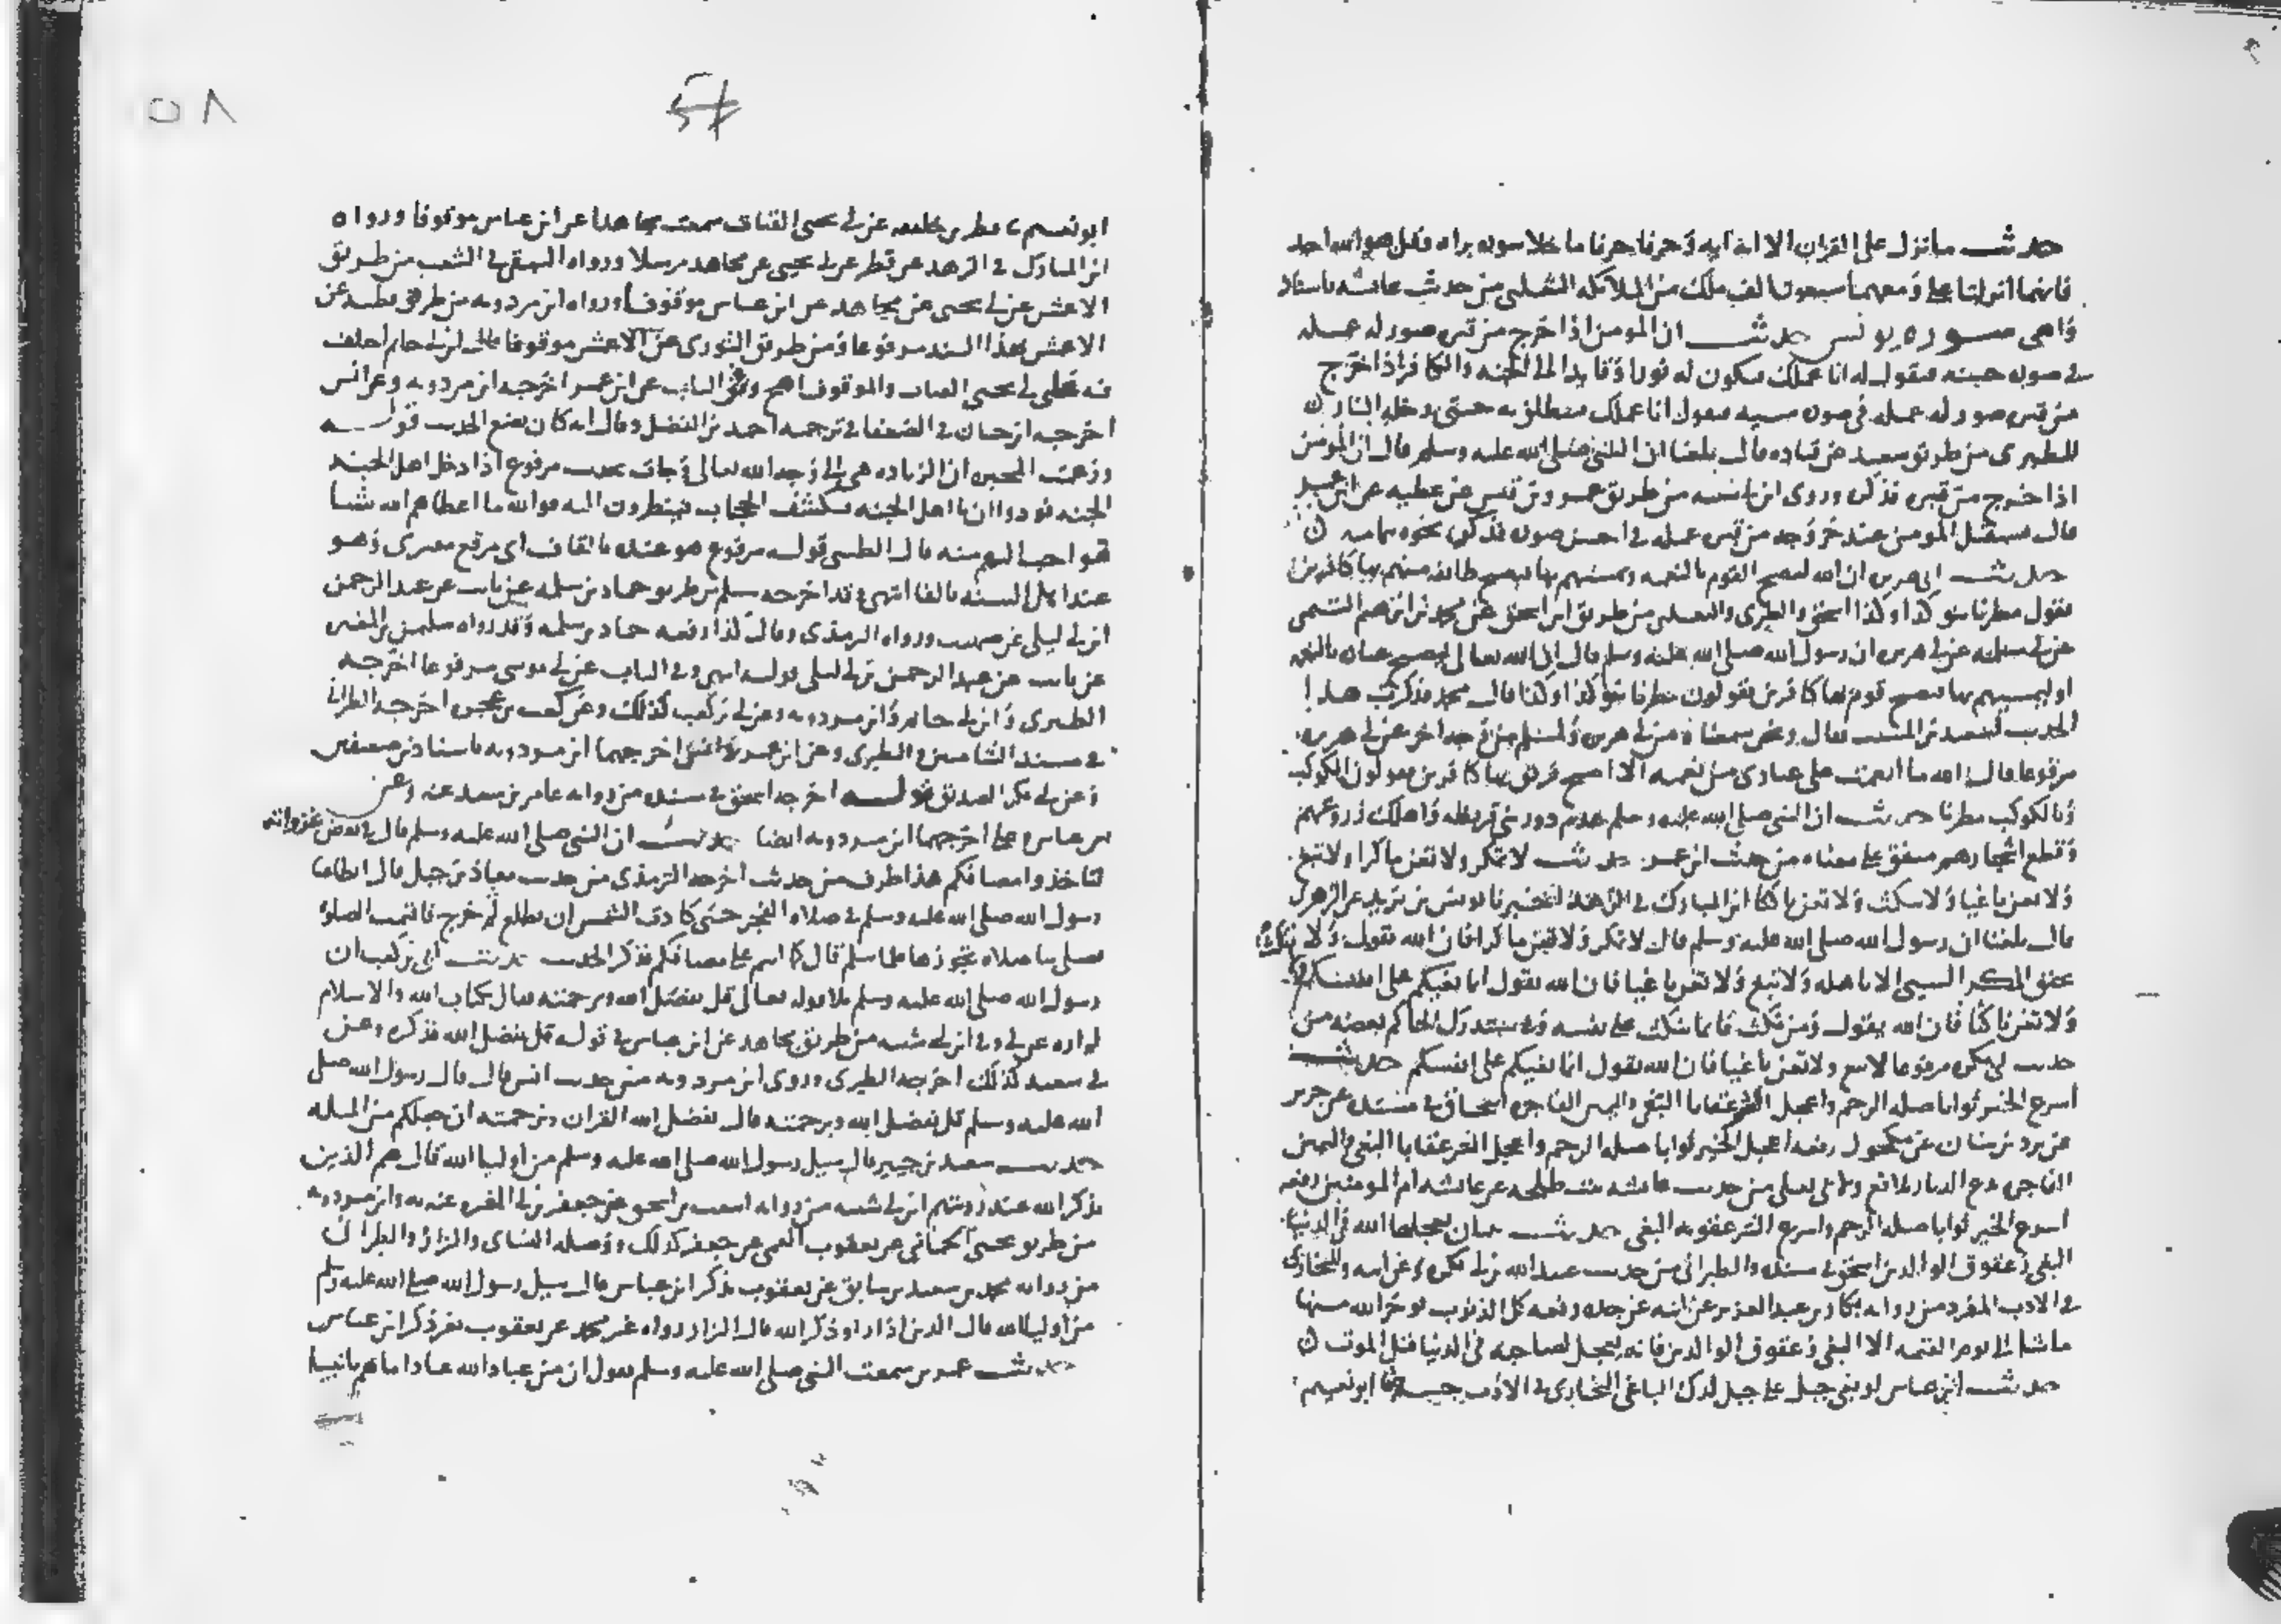 حديث ما نزل على القران الا اية اية وحرفا حرفا ما خلا سورة براه وقل هو الله احد
فانهما انزلتا علي ومعهما سبعون الف ملك من الملائكة الثعلبي من حديث عائشه باسناد
واهي سورة يونس حديث ان المومن اذا خرج من قبره صور له عمله
في صورة حسنه فيقول له انا عملك فيكون له نورا وقايدا الى الجنه والكافر اذا خرج
من قبره صور له عمله في صوره سيه فيقول انا عملك فينطلق به حتى يدخله النار
للطبري من طريق سعيد عن قتاده قال بلغنا ان النبي صلى الله عليه وسلم قال ان المومن
اذا خرج من قبره فذكره وروى ابن ابي شيبه من طريق عمرو بن قيس عن عطيه عن ابن عمر
قال يستقبل المومن عند خروجه من قبره عمله في احسن صوره فذكر نحوه بتمامه
حديث ابي هريره ان الله ليصبح القوم بالنعمه ويمسيهم بها فيصبح طائفه منهم بها كافرين
يقول مطرنا بنو كذا وكذا اسحق والطبري والثعلبي من طريق ابن اسحق عن محمد بن ابراهيم التيمي
عن ابي سلمه عن ابي هريره ان رسول الله صلى الله عليه وسلم قال ان الله تعالى ليصبح عباده بالنعمه
او ليمسيهم بها فيصبح قوم بها كافرين يقولون مطرنا بنو كذا وكذا قال محمد فذكرت هذا
الحديث لسعيد بن المسيب فقال ونحن سمعناه من ابي هريره ولمسلم من وجه اخر عن ابي هريره
مرفوعا قال الله ما انعمت على عبادي من نعمه الا اصبح فريق بها كافرين يقولون الكوكب
وبالكوكب مطرنا حديث ان النبي صلى الله عليه وسلم هدم دور بني قريظه واهلك زروعهم
وقطع اشجارهم متفق على معناه من حديث ابن عمر حديث لا تمكر ولا تعن ماكرا ولا تبغ
ولا تعن باغيا ولا تنكث ولا تعن ناكثا ابن المبارك في الزهد اخبرنا يونس بن يزيد عن الزهري
قال بلغنا ان رسول الله صلى الله عليه وسلم قال لا تمكر ولا تعن ماكرا فان الله يقول ولا
يحيق المكر السيئ الا باهله ولا تبغ ولا تعن باغيا فان الله يقول انما بغيكم على انفسكم
ولا تعن ناكثا فان الله يقول ومن نكث فانما ينكث على نفسه وفي مستدرك الحاكم بعضه من
حديث ابي بكره مرفوعا لا تبغ ولا تعن باغيا فان الله يقول انما بغيكم على انفسكم حديث
اسرع الخير ثوابا صله الرحم واعجل الشر عقابا البغي واليمين الفاجره اسحاق في مسنده عن جرير
عن برد بن سنان عن مكحول رفعه اعجل الخير ثوابا صله الرحم واعجل الشر عقابا البغي واليمين
الفاجره تدع الديار بلاقع ولابي يعلى من حديث عائشه بنت طلحه عن عائشه ام المومنين رفعه
اسرع الخير ثوابا صله الرحم واسرع الشر عقوبه البغي حديث ثنتان يعجلهما الله في الدنيا
البغي وعقوق الوالدين اسحق في مسنده والطبراني من حديث عبيد الله بن ابي بكره عن ابيه وللبخاري
في الادب المفرد من روايه بكار بن عبد العزيز عن ابيه عن جده رفعه كل الذنوب يوخر الله منها
ما شا الى يوم القيمه الا البغي وعقوق الوالدين فانه يعجل لصاحبه في الدنيا قبل الموت
حديث ابن عباس لو بغى جبل على جبل لدك الباغي البخاري في الادب ابو نعيم
ابو نعيم فطر بن خليفه عن ابي يحيى القتات سمعت مجاهدا عن ابن عباس موقوفا ورواه
ابن المبارك في الزهد عن فطر عن ابي يحيى عن مجاهد مرسلا ورواه البيهقي في الشعب من طريق
الاعمش عن ابي يحيى عن مجاهد عن ابن عباس موقوفا ورواه ابن مردويه من طريق قطبه عن
الاعمش بهذا السند مرفوعا ومن طريق الثوري عن الاعمش موقوفا قال ابن ابي حاتم اختلف
فيه على ابي يحيى القتات والموقوف اصح وفي الباب عن ابن عمر اخرجه ابن مردويه وعن انس
اخرجه ابن حبان في الضعفا في ترجمه احمد بن الفضل وقال انه كان يضع الحديث قوله
وزعمت المجبره ان الزياده هي النظر الى وجه الله تعالى وجات بحديث مرفوع اذا دخل اهل الجنه
الجنه نودوا ان يا اهل الجنه فيكشف الحجاب فينظرون اليه فوالله ما اعطاهم الله شيا
هو احب اليهم منه قال الطيبي قوله مرفوع هو عنده بالقاف اي مرقع مفترى وهو
عند اهل السنه بالفا انتهى وقد اخرجه مسلم من طريق حماد بن سلمه عن ثابت عن عبد الرحمن
ابن ابي ليلى عن صهيب ورواه الترمذي وقال كذا رفعه حماد بن سلمه وقد رواه سليمن بن المغيره
عن ثابت عن عبد الرحمن بن ابي ليلى قوله انتهى وفي الباب عن ابي موسى مرفوعا اخرجه
الطبري وابن ابي حاتم وابن مردويه وعن ابي بن كعب كذلك وعن كعب بن عجره اخرجه الطبراني
في مسند الشاميين والطبري وعن ابن عمر وانس اخرجهما ابن مردويه باسنادين ضعيفين
وعن ابي بكر الصديق قوله اخرجه اسحق في مسنده من روايه عامر بن سعد عنه وعن
ابن عباس وعلي اخرجهما ابن مردويه ايضا حديث ان النبي صلى الله عليه وسلم قال في بعض غزواته
لتاخذوا مصافكم هذا طرف من حديث اخرجه الترمذي من حديث معاذ بن جبل قال ابطا عنا
رسول الله صلى الله عليه وسلم في صلاه الفجر حتى كادت الشمس ان تطلع ثم خرج فاقيمت الصلوه
فصلى بنا صلاه تجوز فيها فلما سلم قال كما انتم على مصافكم فذكر الحديث حديث ابي بن كعب ان
رسول الله صلى الله عليه وسلم تلا قوله تعالى قل بفضل الله وبرحمته فقال بكتاب الله والاسلام
ابن ابي شيبه من طريق مجاهد عن ابن عباس في قوله قل بفضل الله فذكره وعن
ابي سعيد كذلك اخرجه الطبري وروى ابن مردويه من حديث انس قال قال رسول الله صلى
الله عليه وسلم قل بفضل الله وبرحمته قال بفضل الله القران وبرحمته ان جعلكم من اهله
حديث سعيد بن جبير قال سيل رسول الله صلى الله عليه وسلم من اوليا الله قال هم الذين
يذكر الله عند رويتهم ابن ابي شيبه من روايه اشعث بن اسحق عن جعفر بن ابي المغيره عنه به وابن مردويه
من طريق يحيى الحماني عن يعقوب القمي عن جعفر كذلك ووصله النساى والبزار والطبراني
من روايه محمد بن سعيد بن سابق عن يعقوب بذكر ابن عباس قال سيل رسول الله صلى الله عليه وسلم
من اوليا الله قال الذين اذا راوا ذكر الله قال البزار رواه غير محمد عن يعقوب بغير ذكر ابن عباس
حديث عمر سمعت النبي صلى الله عليه وسلم يقول ان من عباد الله عبادا ما هم بانبيا